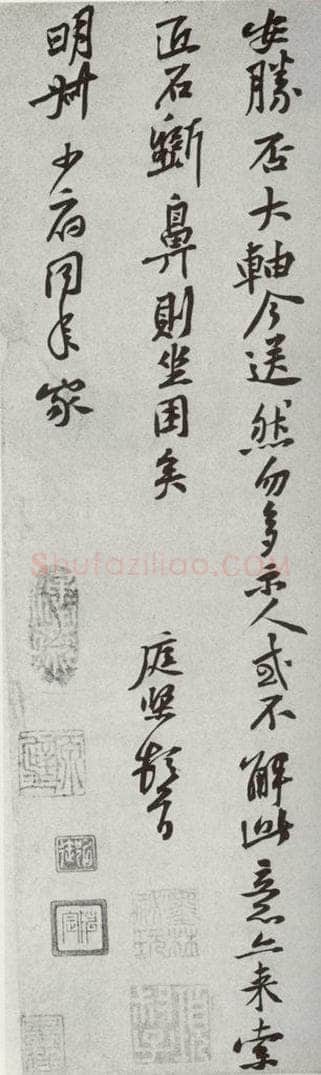 安勝否大軸今送然勿多示人或不解此意亦来索
匠石斵鼻則坐困矣
庭堅頓首
明叔少府同年家
Shufaziliao.COM